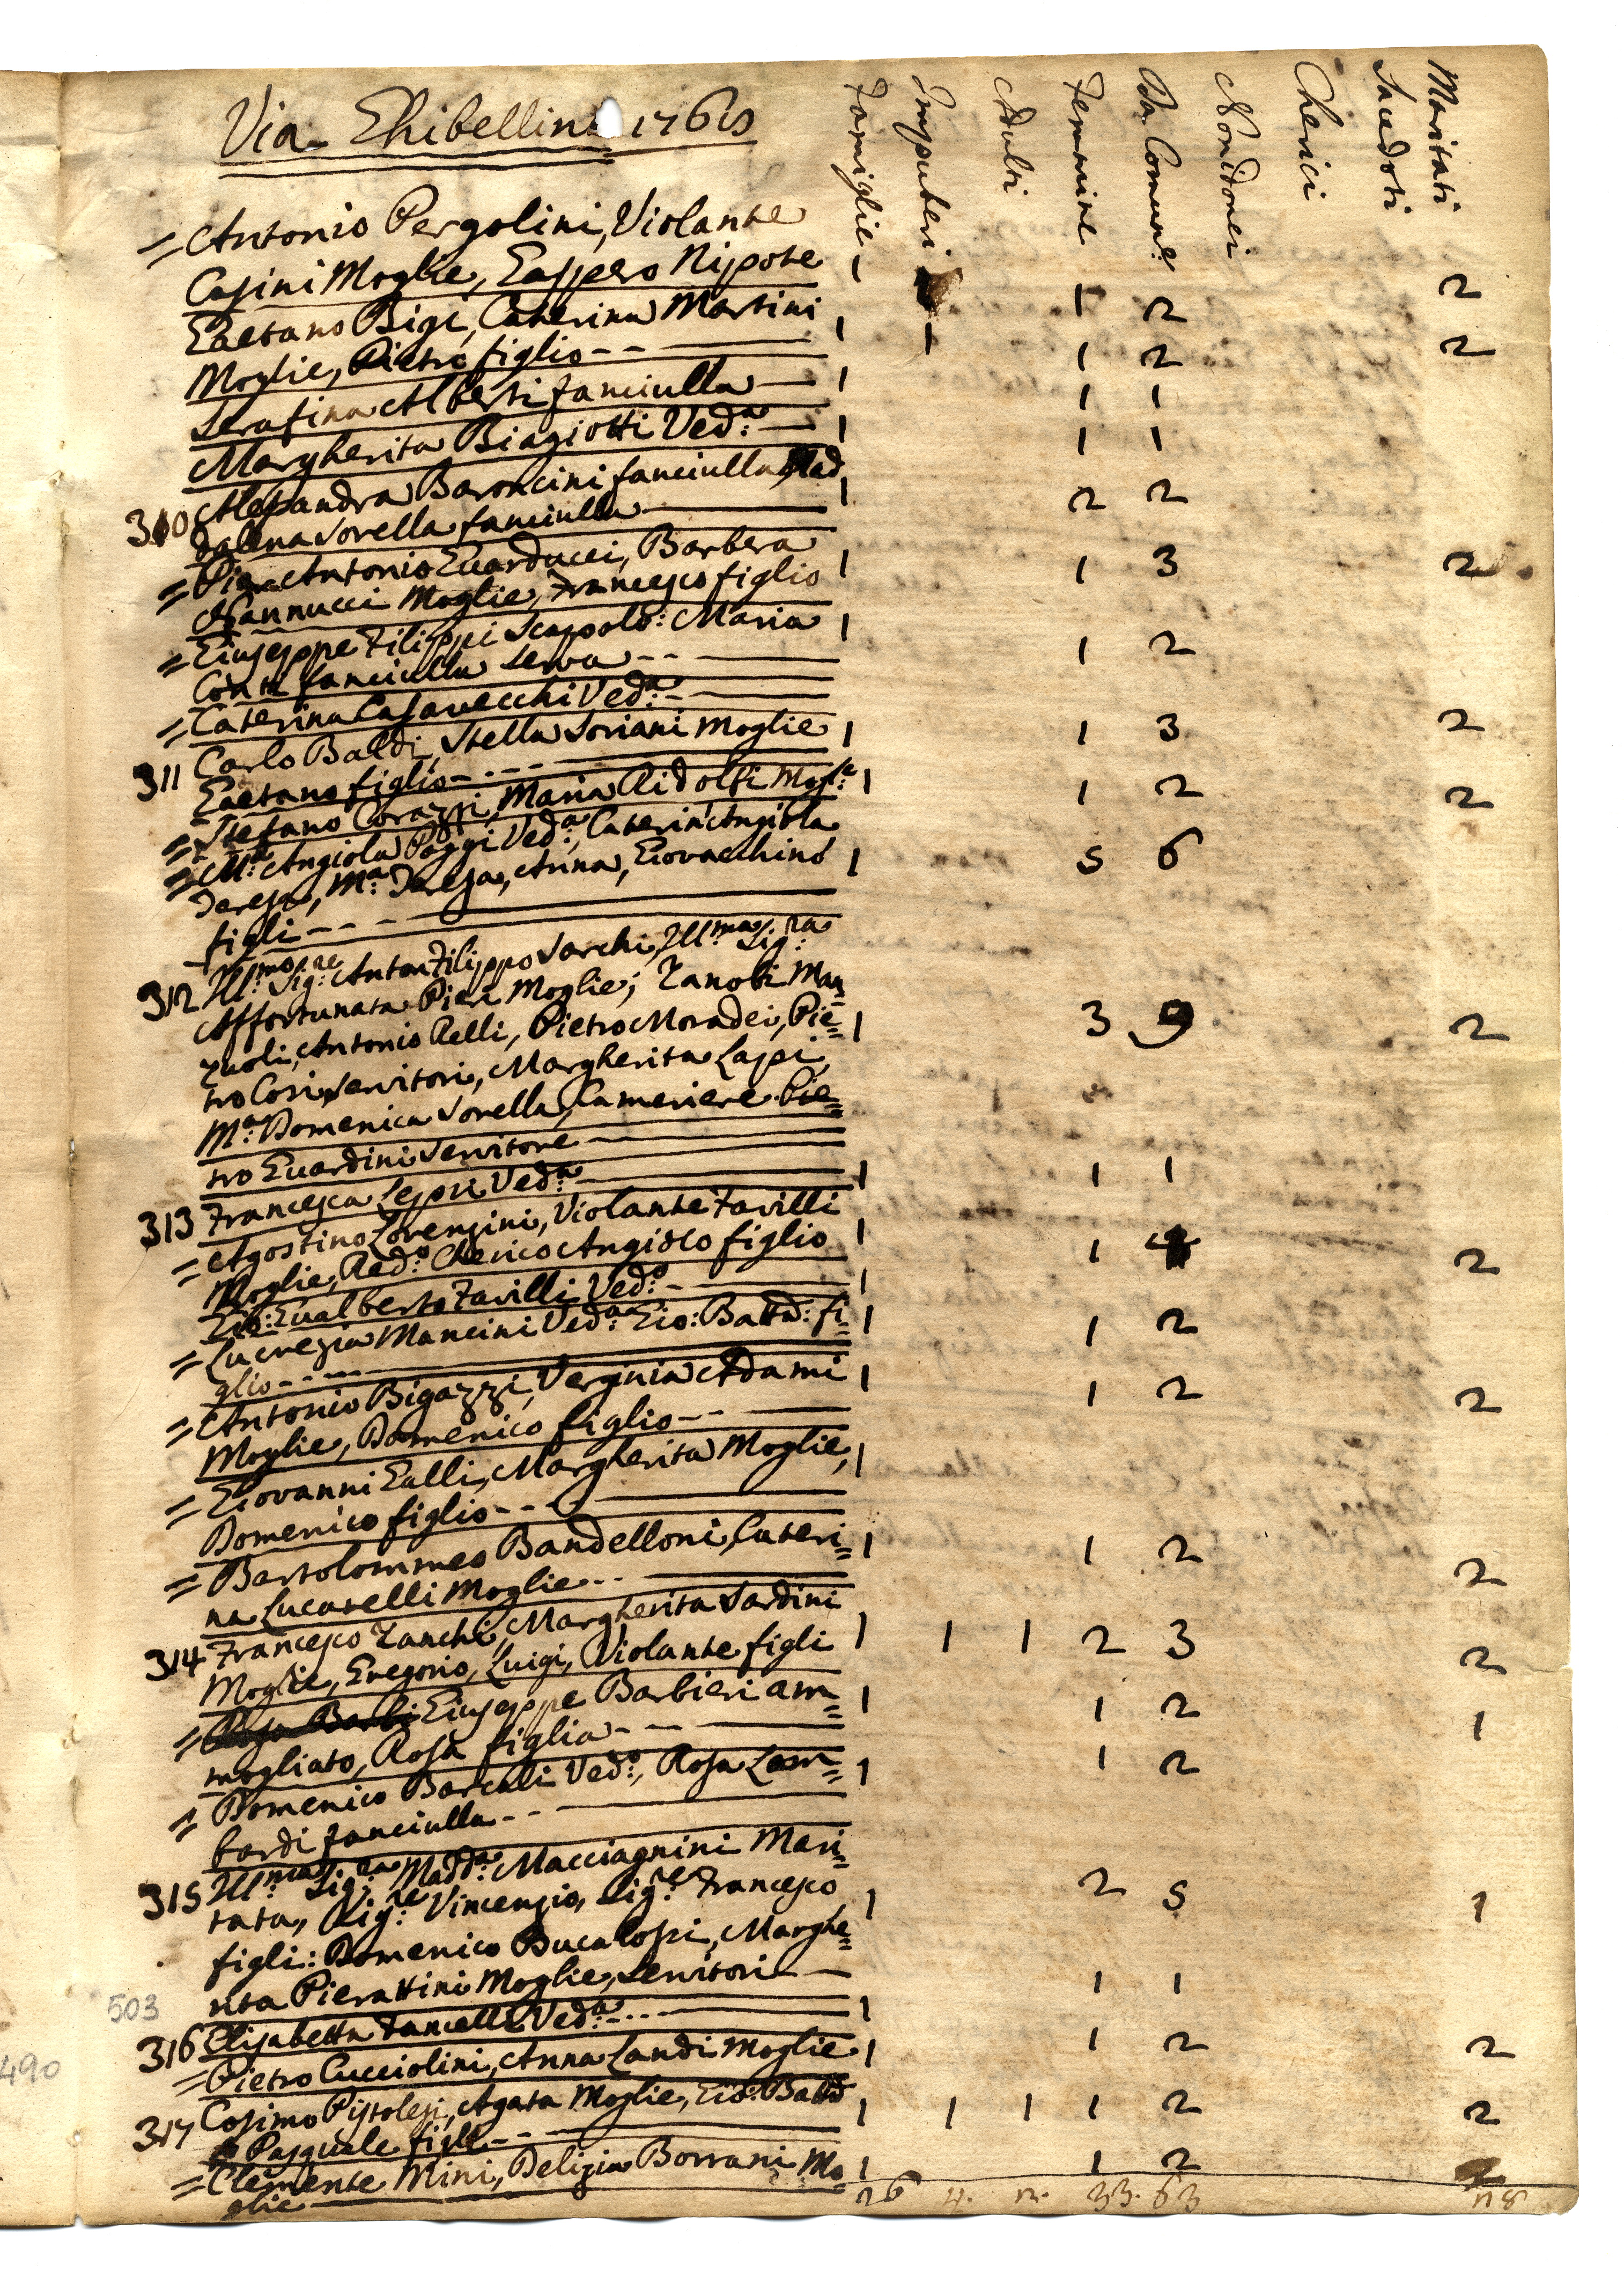 Via Ghibellina 1765
Famiglie
Impuberi
Adulti
Femmine
Da Comun:e
Non idonei
Cherici
Sacerdoti
Maritati
= Antonio Pergolini, Violante
Casini Moglie, Gaspero Nipote 1 1 2 2
Gaetano Bigi, Caterina Martini
Moglie, Pietro figlio - - 1 1 1 2 2
Serafina Alberti fanciulla 1 1 1
Margherita Biagiotti Ved:a 1 1 1
310 Alessandra Baroncini fanciulla, Mad
dalena Sorella fanciulla 1 2 2
= Pier Antonio Guarducci, Barbera
Nannucci Moglie, Francesco figlio 1 1 3 2
= Giuseppe Filippi Scapolo: Maria
Conti fanciulla Serva - - 1 1 2
= Caterina Casavecchi Ved:a
311 Carlo Baldi, Stella Soriani Moglie
Gaetano figlio - - - 1 1 3 2
= Stefano Corazzi, Maria Ridolfi Mog:e 1 1 2 2
= M:a Angiola Poggi Ved:a, Caterin'Angiola
Teresa, M:a Teresa, Anna, Giovacchino
figli - - - 1 5 6
312 Ill:mo Sig:re Anton Filippo Sarchi, Ill:ma Sig:ra
Affortunata Pieri Moglie; Zanobi Man
zuoli, Antonio Relli, Pietro Moradei, Pie=
tro Cosi Servitori, Margherita Lapi, 1 3 9 2
M:a Domenica Sorella, Cameriere. Pie=
tro Guardini Servitore
313 Francesca Lepri Ved:a 1 1 1
= Agostino Lorenzini, Violante Favilli
Moglie, Red:o Cherico Angiolo figlio 1 1 4 2
Gio: Gualberto Favilli Ved:o 1
= Lucrezia Mancini Ved:a Gio: Batt:a: fi= 1 1 2
glio - - -
= Antonio Bigazzi, Verginia Adami
Moglie, Domenico figlio - - 1 1 2 2
= Giovanni Galli, Margherita Moglie,
Domenico figlio - - - 1
= Bartolommeo Bandelloni, Cateri=
na Lucatelli Moglie - - 1 1 2 2
314 Francesco Zanchi, Margherita Sardini
Moglie, Gregorio, Luigi, Violante figli 1 1 1 2 3 2
= Rosa Barbi Giuseppe Barbieri am=
mogliato, Rosa figlia - - 1 1 2 1
= Domenico Barcali Ved:o, Rosa Lom=
bardi fanciulla - - 1 1 2
315 Ill:ma Sig:ra Madd:a Macciagnini Mari=
tata, Sig:re Vincenzio, Sig:re Francesco
figli: Domenico Bucalossi, Marghe=
rita Pierattini Moglie, Servitori 1 2 5 1
503
316 Elisabetta Fancelli Ved:a - - - 1 1 1
= Pietro Cucciolini, Anna Landi Moglie 1 1 2 2
490
317 Cosimo Pistolesi, Agata Moglie, Gio: Batt:a
Pasquale figli - - 1 1 1 1 2 2
= Clemente Mini, Delizia Borrani Mo
glie 1 1 2 2
26 4. 2. 33. 63 28